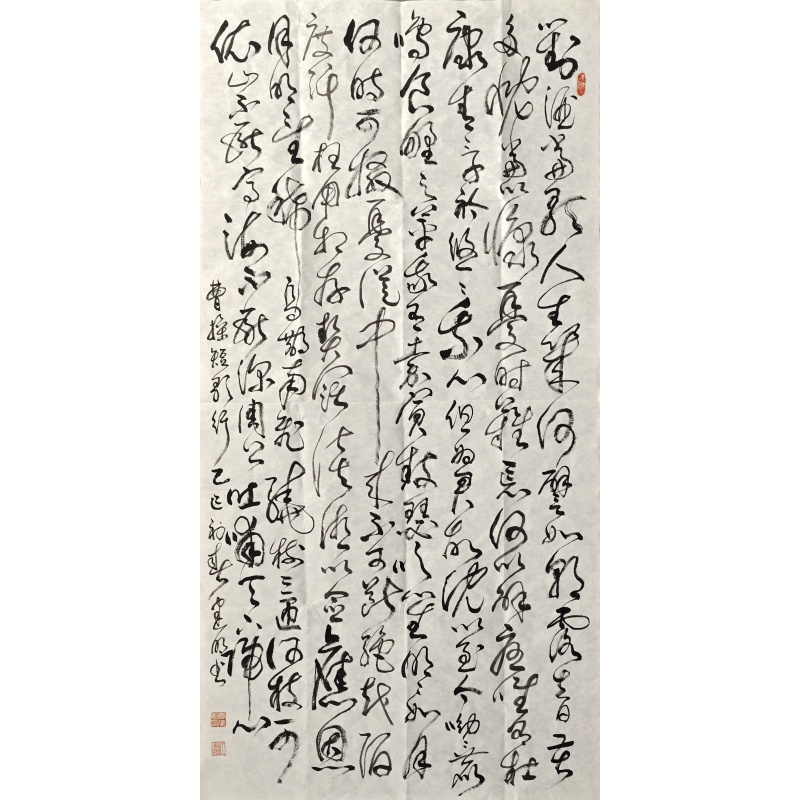 對酒當歌人生幾何譬如朝露去日苦
多慨當以慷憂思難忘何以解憂唯有杜
康青青子衿悠〻我心但為君故沈吟至今呦〻鹿
鳴食野之苹我有嘉賓鼓瑟吹笙明〻如月
何時可掇憂從中來不可斷絕越陌
度阡枉用相存契闊談讌心念舊恩
月明星稀烏鵲南飛繞樹三匝何枝可
依山不厭高海不厭深周公吐哺天下歸心
曹操短歌行乙巳初春建明書